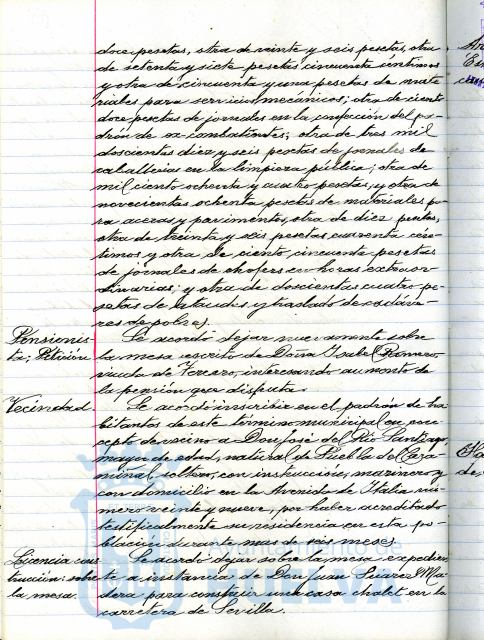 doce pesetas, otra de veinte y seis pesetas, otra
de setenta y siete pesetas cincuenta céntimos
y otra de cincuenta y una pesetas de mate-
riales para servicios mecánicos; otra de ciento
doce pesetas de jornales en la confección del pa-
drón de ex-combatientes; otra de tres mil
doscientas diez y seis pesetas de jornales de
caballerías en la limpieza pública; otra de
mil ciento ochenta y cuatro pesetas, y otra de
novecientas ochenta pesetas de materiales pa-
ra aceras y pavimentos, otra de diez pesetas,
otra de treinta y seis pesetas cuarenta cén-
timos y otra de ciento cincuenta pesetas
de jornales de chofers en horas extraor-
dinarias; y otra de doscientas cuatro pe-
setas de ataudes y traslado de cadáve-
res de pobres.
Pensionis-
ta; Petición
Se acordó dejar nuevamente sobre
la mesa escrito de Doña Isabel Romero
viuda de Forcero, interesando aumento de
la pensión que disfruta.
Vecindad.
Se acordó inscribir en el padrón de ha-
bitantes de este término municipal en con-
cepto de vecino a Don José del Río Santiago,
mayor de edad, natural de Puebla del Cara-
miñal, soltero, con instrucción, marinero y
con domicilio en la Avenida de Italia nú-
mero veinte y nueve, por haber acreditado
testificalmente su residencia en esta po-
blación durante mas de seis meses.
Licencia cons-
trucción: sobre
la mesa.
Se acordó dejar sobre la mesa expedien-
te a instancia de Don Juan Suarez Ma-
dera para construir una casa chalet en la
carretera de Sevilla.
Ayuntamiento de
HUELVA